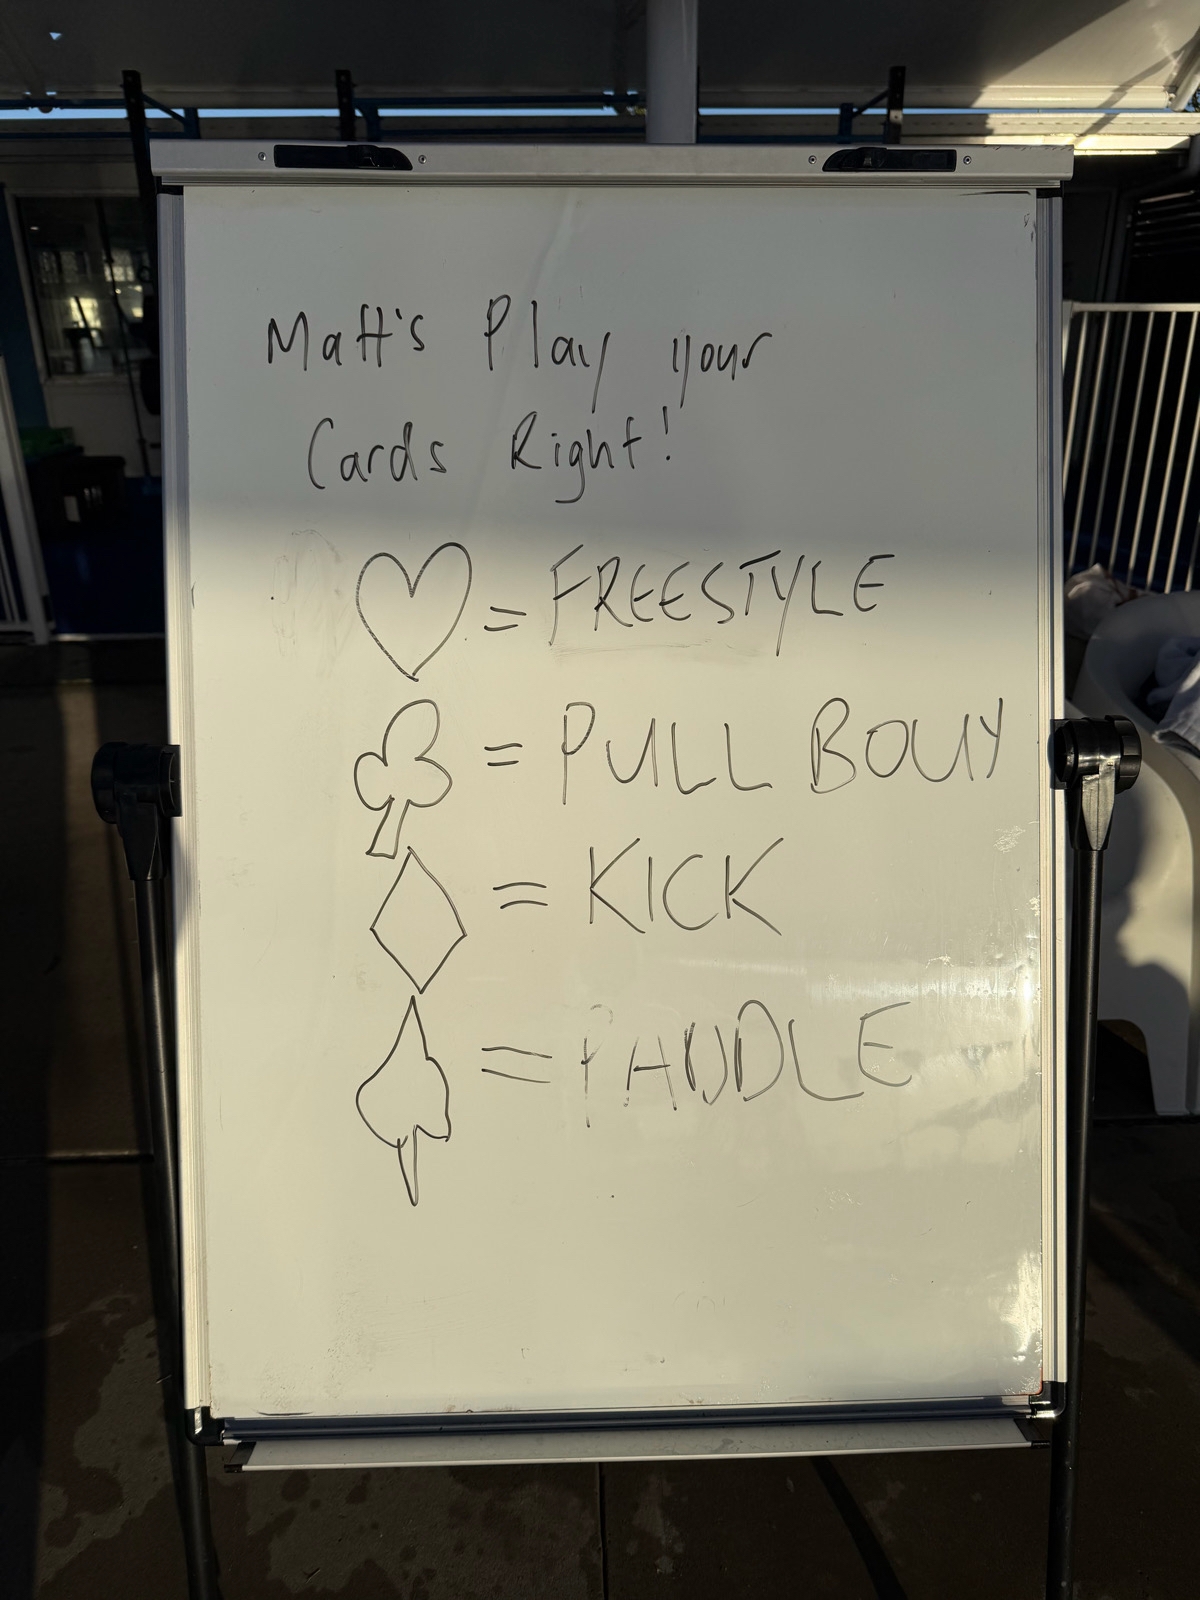 Matt's Play your
Cards Right!
= FREESTYLE
= PULL BOUY
= KICK
= PADDLE